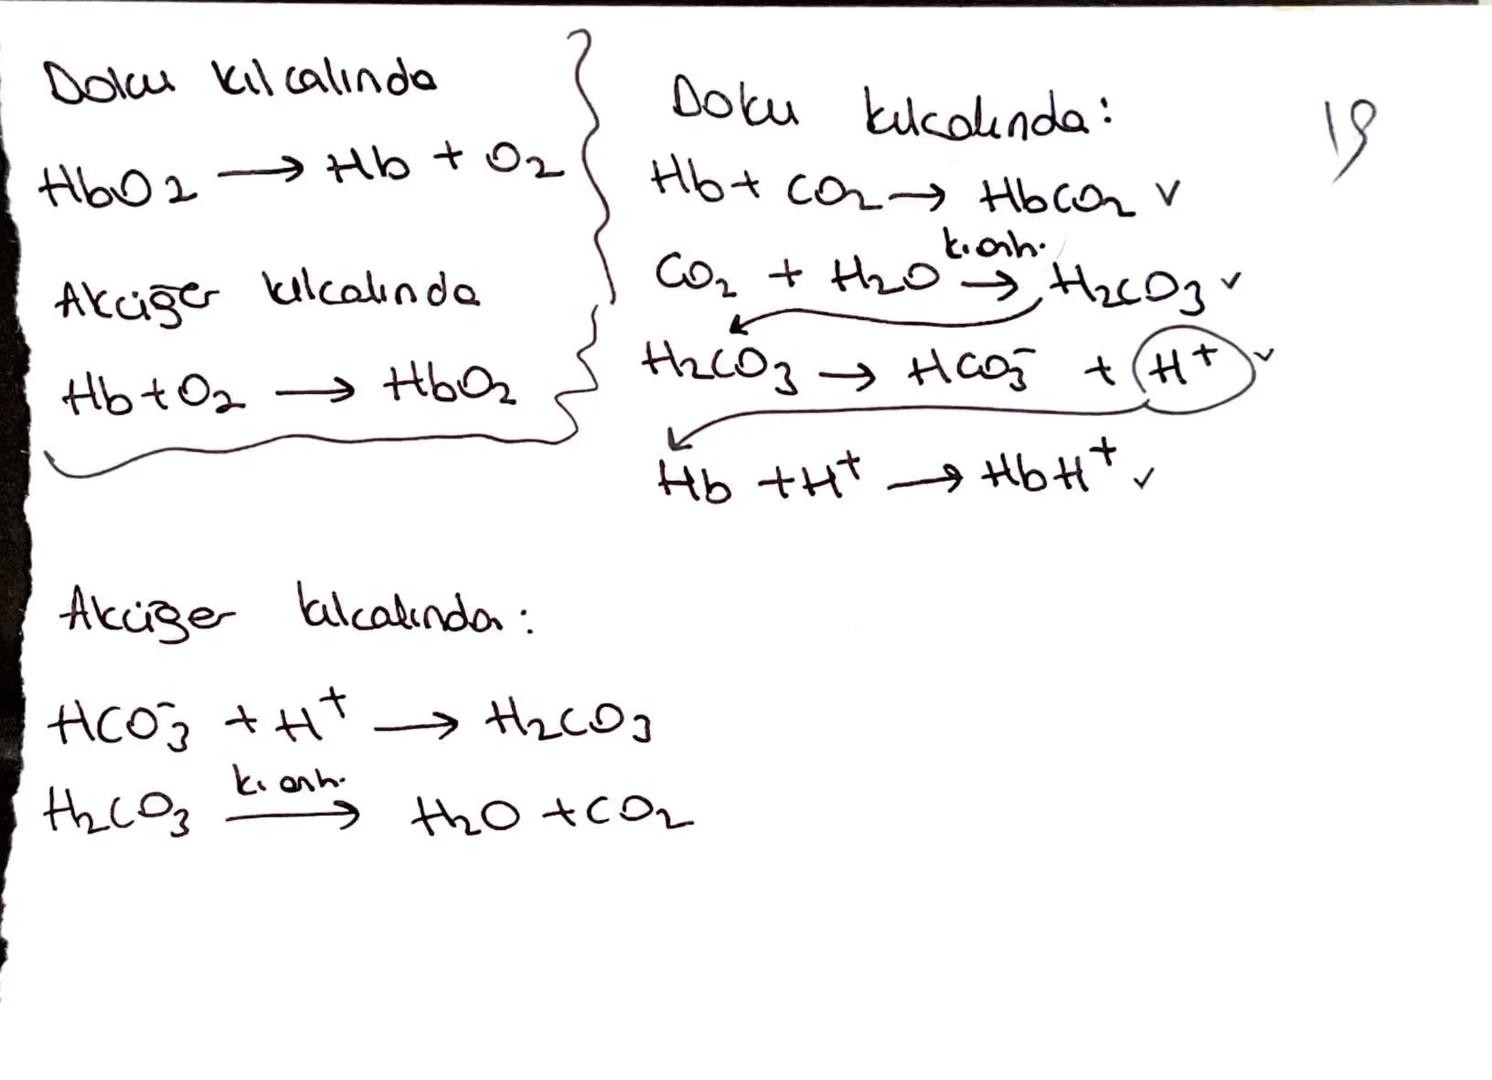 Doku kılcalında
HbO2 → Hb + O2
Akciğer kılcalında
Hb + O2 → HbO2
Doku kılcalında:
19
Hb + CO2 → HbCO2 ✓
k. anh.
CO2 + H2O → H2CO3 ✓
H2CO3 → HCO3⁻ + H⁺ ✓
Hb + H⁺ → HbH⁺ ✓
Akciğer kılcalında:
HCO3⁻ + H⁺ → H2CO3
k. anh.
H2CO3 → H2O + CO2